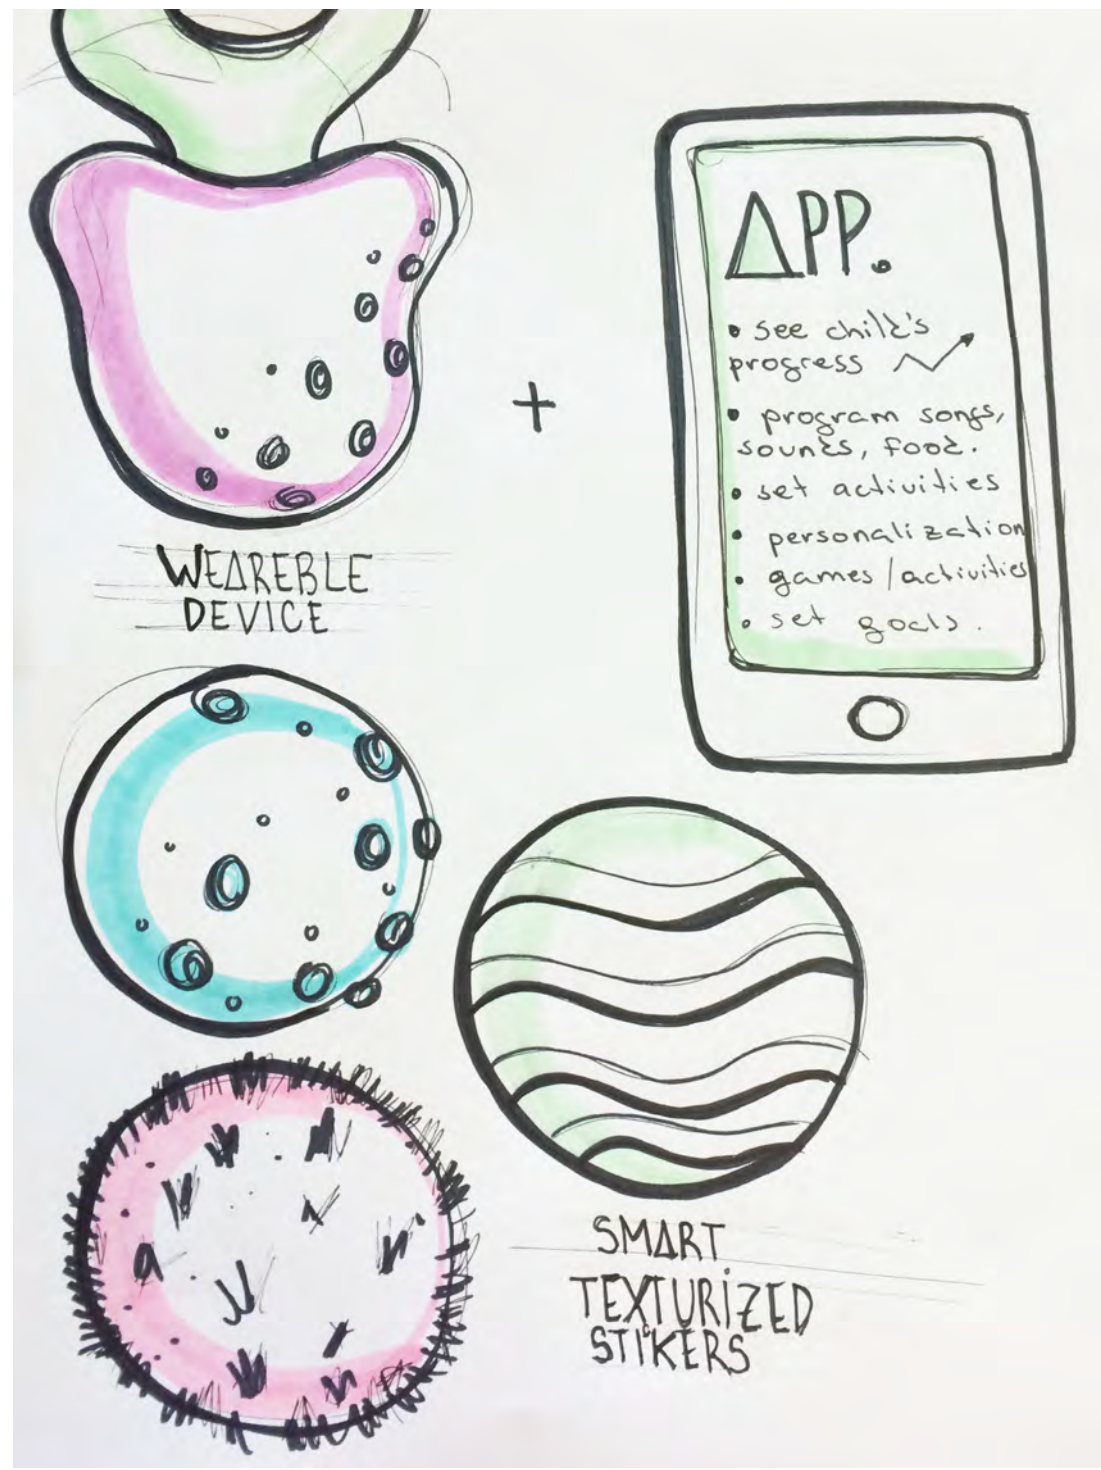 WEAREBLE
DEVICE
+
APP.
• see child's
progress
• program songs,
sounds, food.
• set activities
• personalization
• games/activities
• set goals.
SMART
TEXTURIZED
STIKERS